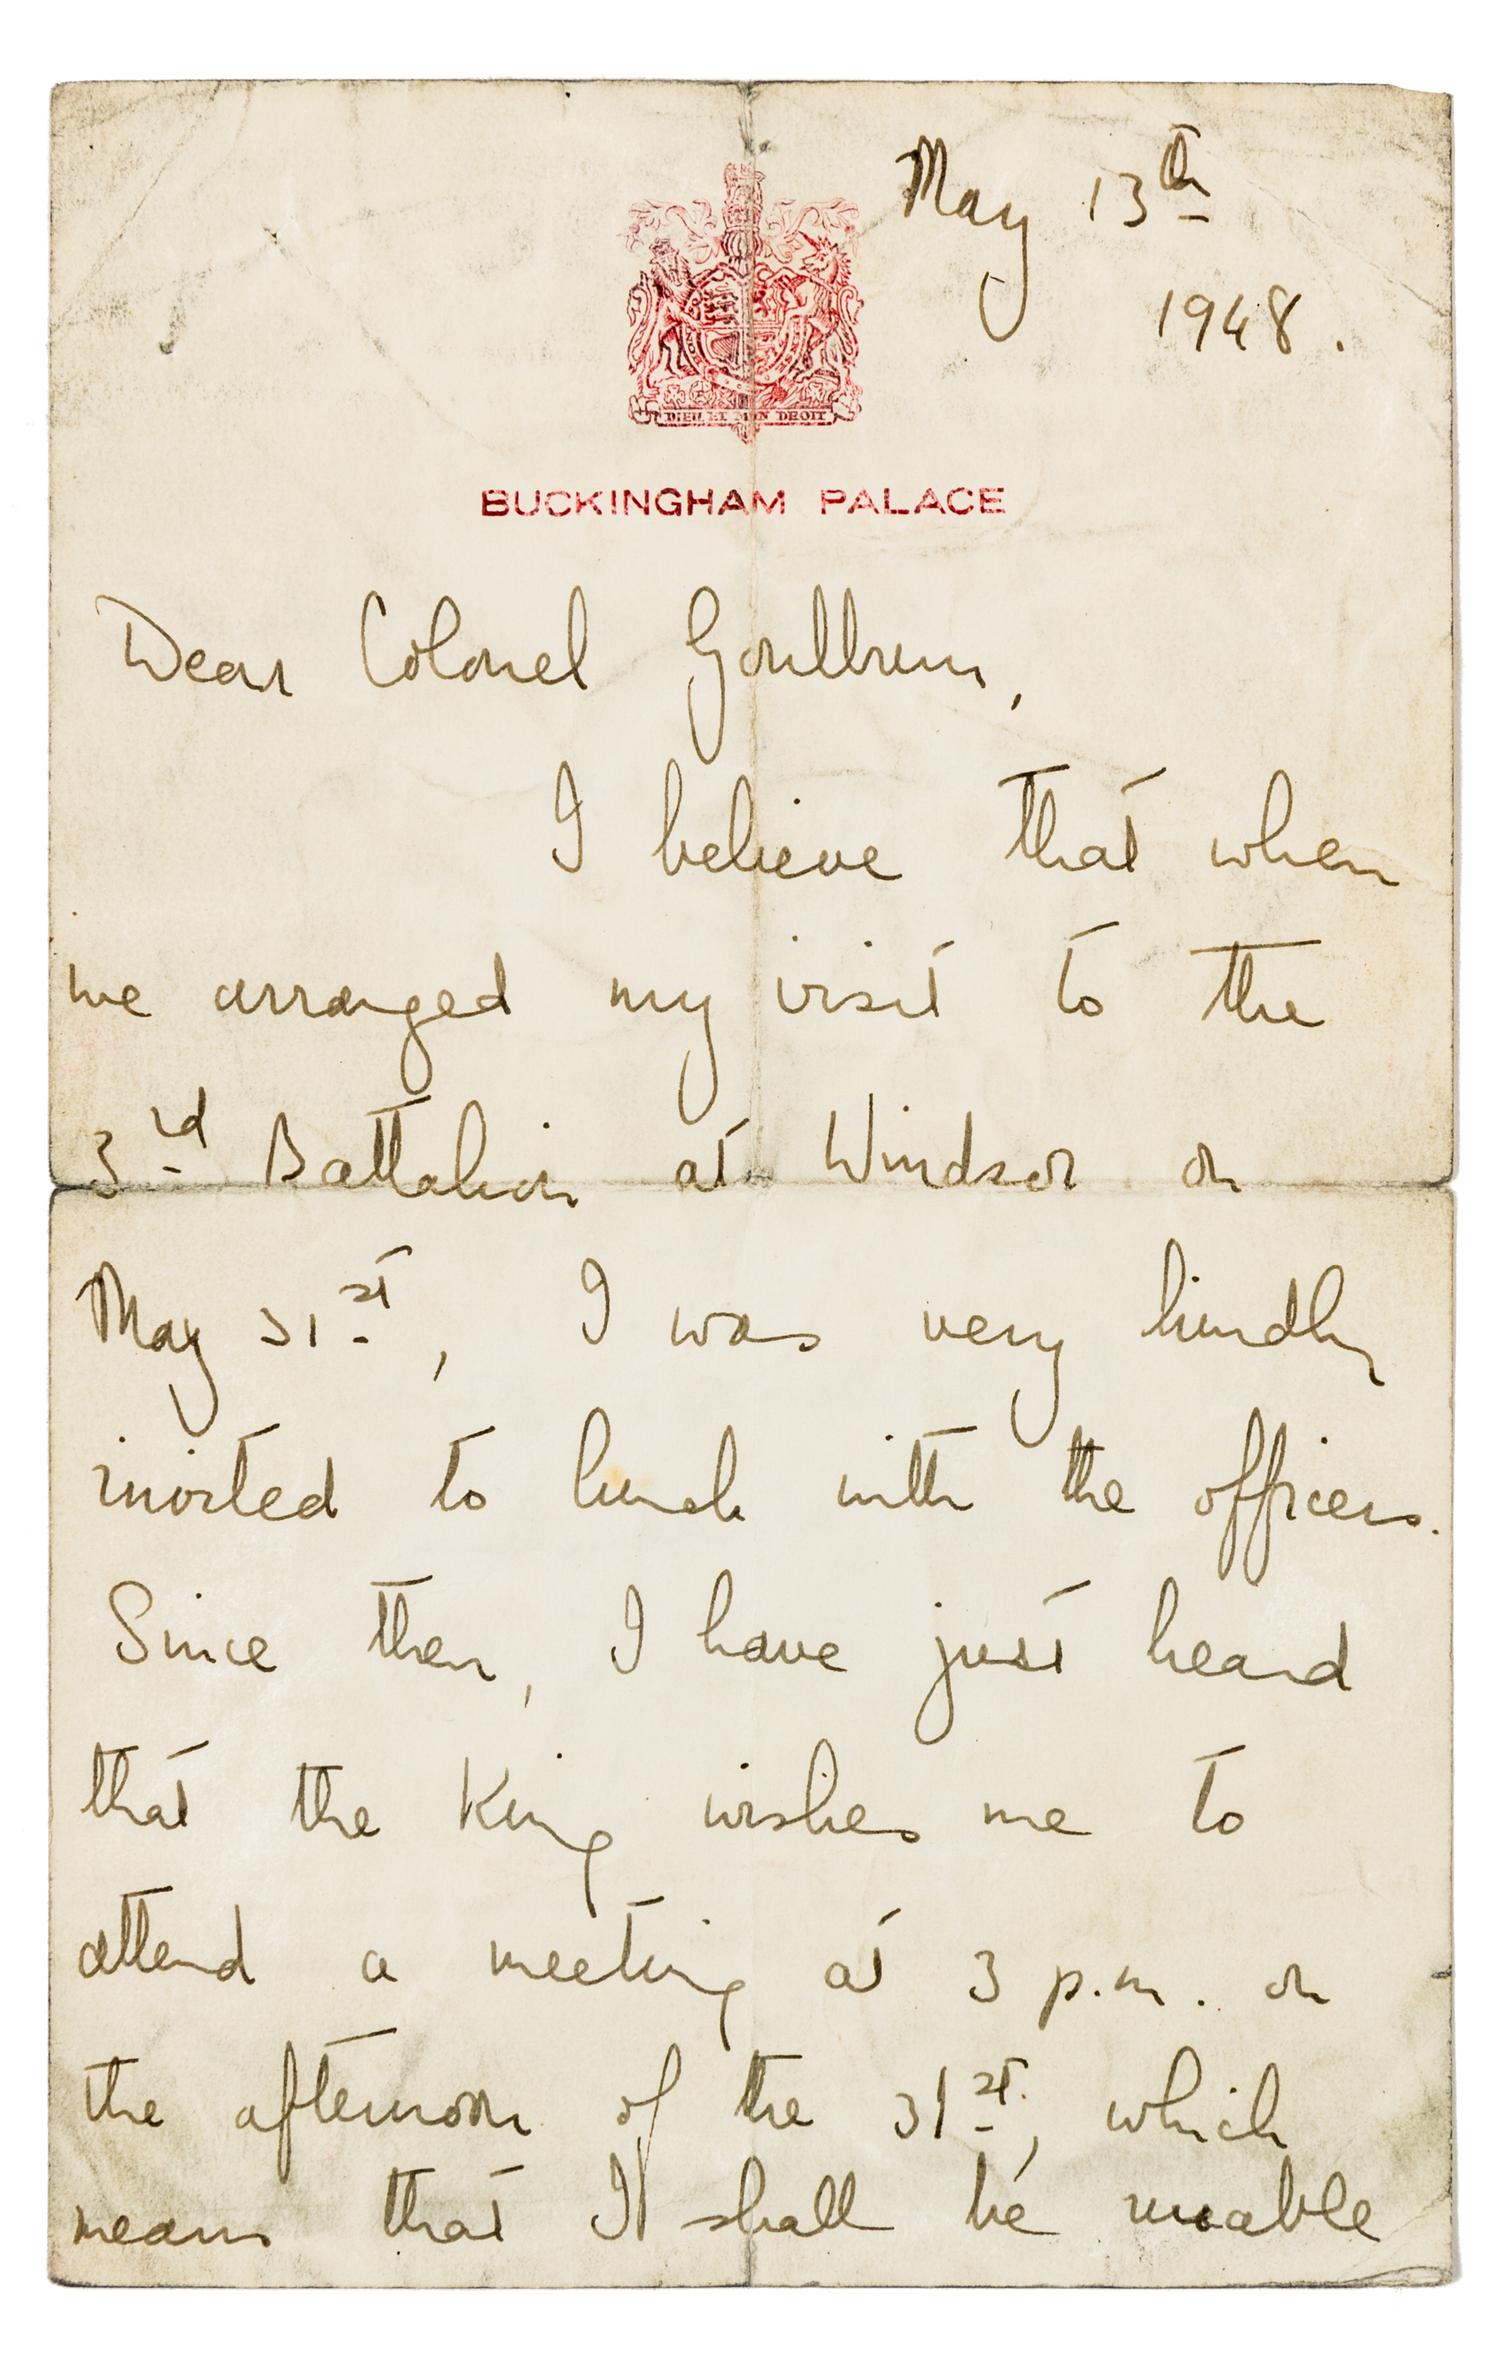 May 13th
1948.
DIEU ET MON DROIT
BUCKINGHAM PALACE
Dear Colonel Goulburn,
I believe that when
we arranged my visit to the
3rd Battalion at Windsor on
May 31st, I was very kindly
invited to lunch with the officers.
Since then, I have just heard
that the King wishes me to
attend a meeting at 3 p.m. on
the afternoon of the 31st, which
means that I shall be unable